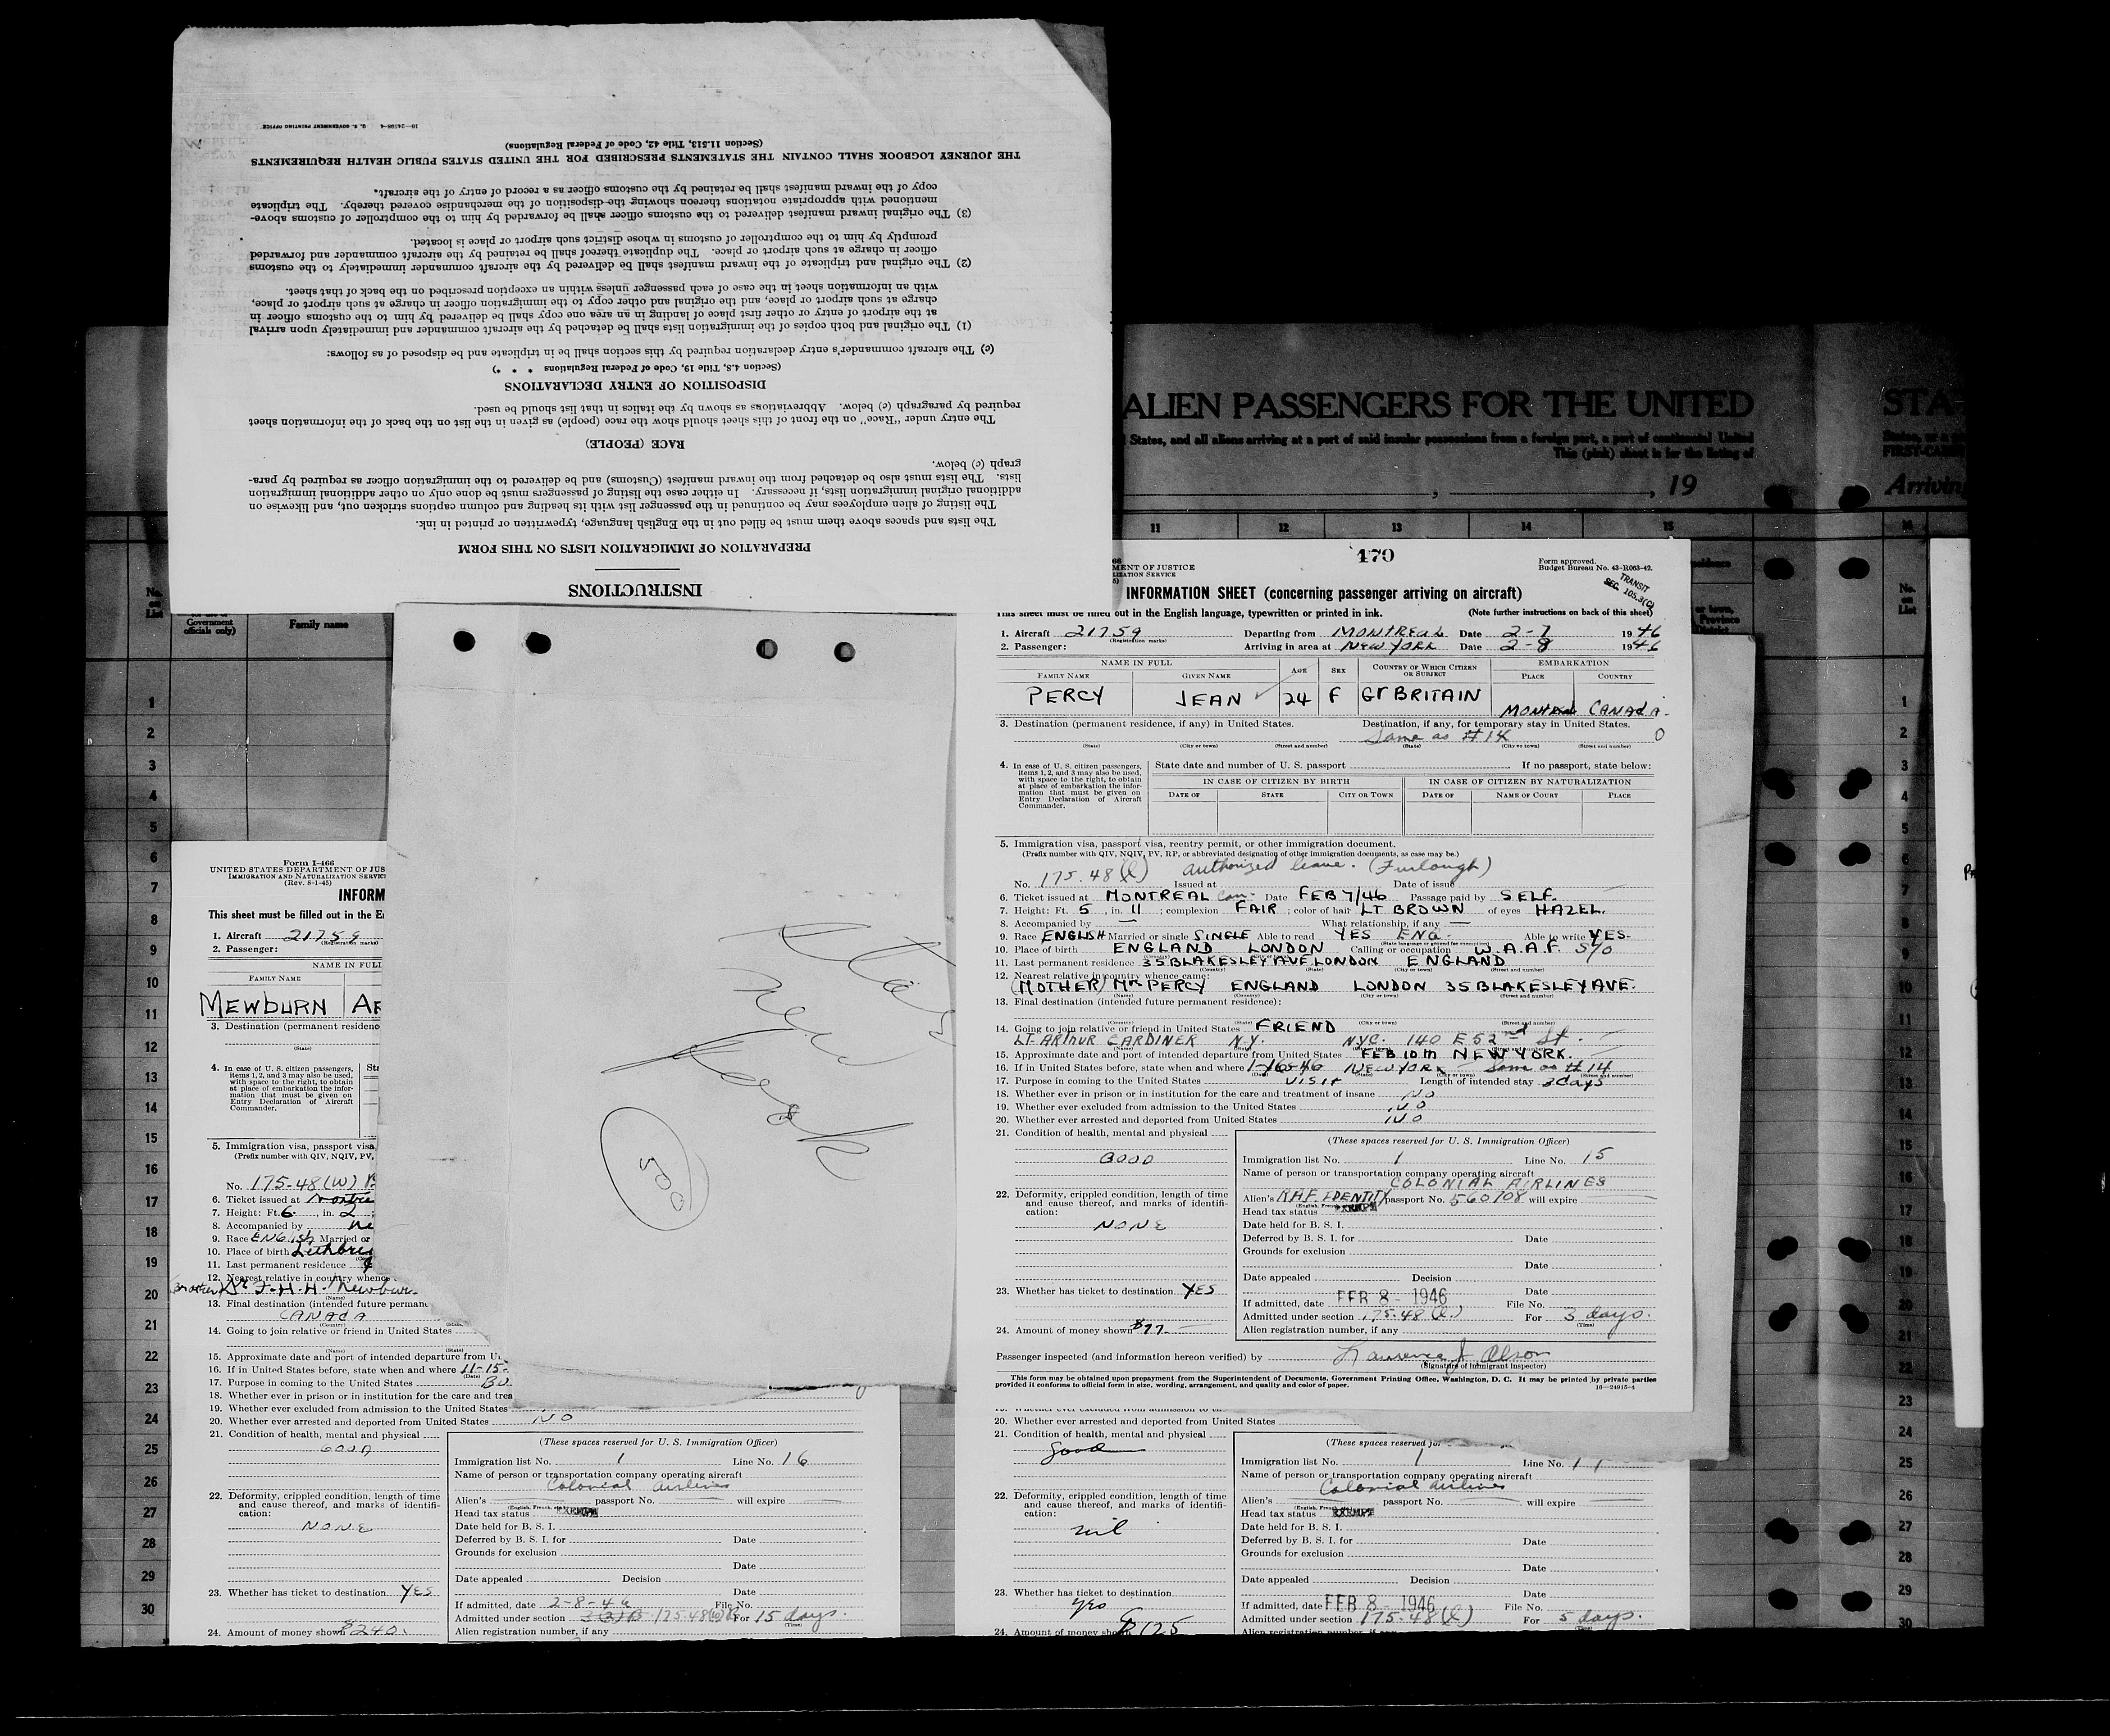 INSTRUCTIONS
PREPARATION OF IMMIGRATION LISTS ON THIS FORM
The lists and spaces above them must be filled out in the English language, typewritten or printed in ink.
The listing of alien employees may be continued in the passenger list with its heading and column captions stricken out, and likewise on
additional original immigration lists, if necessary. In either case the listing of passengers must be done only on other additional immigration
lists. The lists must also be detached from the inward manifest (Customs) and be delivered to the immigration officer as required by para-
graph (c) below.
RACE (PEOPLE)
The entry under "Race" on the front of this sheet should show the race (people) as given in the list on the back of the information sheet
required by paragraph (c) below. Abbreviations as shown by the italics in that list should be used.
DISPOSITION OF ENTRY DECLARATIONS
(Section 4.8, Title 19, Code of Federal Regulations * * *)
(c) The aircraft commander's entry declaration required by this section shall be in triplicate and be disposed of as follows:
(1) The original and both copies of the immigration lists shall be detached by the aircraft commander and immediately upon arrival
at the airport of entry or other first place of landing in an area one copy shall be delivered by him to the customs officer in
charge at such airport or place, and the original and other copy to the immigration officer in charge at such airport or place,
with an information sheet in the case of each passenger unless within an exception prescribed on the back of that sheet.
(2) The original and triplicate of the inward manifest shall be delivered by the aircraft commander immediately to the customs
officer in charge at such airport or place. The duplicate thereof shall be retained by the aircraft commander and forwarded
promptly by him to the comptroller of customs in whose district such airport or place is located.
(3) The original inward manifest delivered to the customs officer shall be forwarded by him to the comptroller of customs above-
mentioned with appropriate notations thereon showing the disposition of the merchandise covered thereby. The triplicate
copy of the inward manifest shall be retained by the customs officer as a record of entry of the aircraft.
THE JOURNEY LOGBOOK SHALL CONTAIN THE STATEMENTS PRESCRIBED FOR THE UNITED STATES PUBLIC HEALTH REQUIREMENTS
(Section 11.513, Title 42, Code of Federal Regulations)
16—24598-4 U. S. GOVERNMENT PRINTING OFFICE
ALIEN PASSENGERS FOR THE UNITED
States, and all aliens arriving at a port of said insular possessions from a foreign port, a port of continental United
This (pink) sheet is for the listing of
, 19
STA
FIRST-CAB
Arriving
11 12 13 14 15 16
No. on List
Government officials only)
Family name
1
2
3
4
5
6
7
8
9
10
11
12
13
14
15
16
17
18
19
20
21
22
23
24
25
26
27
28
29
30
470
MENT OF JUSTICE
LIZATION SERVICE
Form approved.
Budget Bureau No. 43-R063-42.
TRANSIT
SEC. 105.3(C)
INFORMATION SHEET (concerning passenger arriving on aircraft)
This sheet must be filled out in the English language, typewritten or printed in ink. (Note further instructions on back of this sheet)
1. Aircraft 21759 (Registration marks) Departing from MONTREAL Date 2-7 1946
2. Passenger: Arriving in area at NEW YORK Date 2-8 1946
NAME IN FULL AGE SEX COUNTRY OF WHICH CITIZEN OR SUBJECT EMBARKATION
FAMILY NAME GIVEN NAME PLACE COUNTRY
PERCY JEAN 24 F GT BRITAIN MONTREAL CANADA.
3. Destination (permanent residence, if any) in United States. Destination, if any, for temporary stay in United States.
Same as #14
(State) (City or town) (Street and number) (State) (City or town) (Street and number)
4. In case of U. S. citizen passengers, items 1, 2, and 3 may also be used, with space to the right, to obtain at place of embarkation the information that must be given on Entry Declaration of Aircraft Commander.
State date and number of U. S. passport If no passport, state below:
IN CASE OF CITIZEN BY BIRTH IN CASE OF CITIZEN BY NATURALIZATION
DATE OF STATE CITY OR TOWN DATE OF NAME OF COURT PLACE
5. Immigration visa, passport visa, reentry permit, or other immigration document.
(Prefix number with QIV, NQIV, PV, RP, or abbreviated designation of other immigration documents, as case may be.)
No. 175.48(l) authorized leave. (Furlough) Issued at Date of issue
6. Ticket issued at MONTREAL Can. Date FEB 7/46 Passage paid by SELF.
7. Height: Ft. 5, in. 11; complexion FAIR; color of hair LT BROWN of eyes HAZEL.
8. Accompanied by — What relationship, if any —
9. Race ENGLISH Married or single SINGLE Able to read YES ENG. Able to write YES.
10. Place of birth ENGLAND LONDON Calling or occupation W.A.A.F. S/O
11. Last permanent residence 35 BLAKESLEY AVE LONDON ENGLAND
12. Nearest relative in country whence came:
(MOTHER) Mrs PERCY ENGLAND LONDON 35 BLAKESLEY AVE.
13. Final destination (intended future permanent residence):
14. Going to join relative or friend in United States FRIEND
LT. ARTHUR GARDINER N.Y. NYC. 140 E 52nd St.
15. Approximate date and port of intended departure from United States FEB 10th NEW YORK.
16. If in United States before, state when and where 1-16-46 NEW YORK Same as #14
17. Purpose in coming to the United States VISIT Length of intended stay 3 days
18. Whether ever in prison or in institution for the care and treatment of insane NO
19. Whether ever excluded from admission to the United States NO
20. Whether ever arrested and deported from United States NO
21. Condition of health, mental and physical
GOOD
22. Deformity, crippled condition, length of time and cause thereof, and marks of identification:
NONE
23. Whether has ticket to destination. YES
24. Amount of money shown $77.—
(These spaces reserved for U. S. Immigration Officer)
Immigration list No. 1 Line No. 15
Name of person or transportation company operating aircraft
COLONIAL AIRLINES
Alien's RAF IDENTITY passport No. 560708 will expire
Head tax status EXEMPT
Date held for B. S. I.
Deferred by B. S. I. for Date
Grounds for exclusion
Date
Date appealed Decision
Date
If admitted, date FEB 8 - 1946 File No.
Admitted under section 175.48(l.) For 3 days.
(Time)
Alien registration number, if any
Passenger inspected (and information hereon verified) by Laurence J Olson
(Signature of Immigrant Inspector)
This form may be obtained upon prepayment from the Superintendent of Documents, Government Printing Office, Washington, D. C. It may be printed by private parties
provided it conforms to official form in size, wording, arrangement, and quality and color of paper.
16—24915-4
New
York
Form I-466
UNITED STATES DEPARTMENT OF JUS
IMMIGRATION AND NATURALIZATION SERVIC
(Rev. 8-1-45)
INFORM
This sheet must be filled out in the E
1. Aircraft 21759
(Registration marks)
2. Passenger:
NAME IN FULL
FAMILY NAME
MEWBURN AR
3. Destination (permanent residenc
(State)
4. In case of U. S. citizen passengers, items 1, 2, and 3 may also be used, with space to the right, to obtain at place of embarkation the information that must be given on Entry Declaration of Aircraft Commander.
5. Immigration visa, passport visa
(Prefix number with QIV, NQIV, PV,
No. 175-48(W)
6. Ticket issued at
7. Height: Ft. 6, in. 2
8. Accompanied by
9. Race English Married or
10. Place of birth
11. Last permanent residence
12. Nearest relative in country whence
F. H. H. Mewburn
13. Final destination (intended future permane
CANADA
14. Going to join relative or friend in United States
15. Approximate date and port of intended departure from U
16. If in United States before, state when and where 11-15-
17. Purpose in coming to the United States BU
18. Whether ever in prison or in institution for the care and trea
19. Whether ever excluded from admission to the United States
20. Whether ever arrested and deported from United States NO
21. Condition of health, mental and physical
GOOD
22. Deformity, crippled condition, length of time and cause thereof, and marks of identification:
NONE
23. Whether has ticket to destination. YES
24. Amount of money shown $240.
(These spaces reserved for U. S. Immigration Officer)
Immigration list No. 1 Line No. 16
Name of person or transportation company operating aircraft
Colonial Airlines
Alien's passport No. will expire
Head tax status EXEMPT
Date held for B. S. I.
Deferred by B. S. I. for Date
Grounds for exclusion
Date
Date appealed Decision
Date
If admitted, date 2-8-46 File No.
Admitted under section For 15 days.
(Time)
Alien registration number, if any
20. Whether ever arrested and deported from United States
21. Condition of health, mental and physical
good
22. Deformity, crippled condition, length of time and cause thereof, and marks of identification:
nil
23. Whether has ticket to destination.
yes
24. Amount of money shown $125
(These spaces reserved for
Immigration list No. 1 Line No.
Name of person or transportation company operating aircraft
Colonial Airlines
Alien's passport No. will expire
Head tax status EXEMPT
Date held for B. S. I.
Deferred by B. S. I. for Date
Grounds for exclusion
Date
Date appealed Decision
Date
If admitted, date FEB 8 - 1946 File No.
Admitted under section 175.48(l) For 5 days.